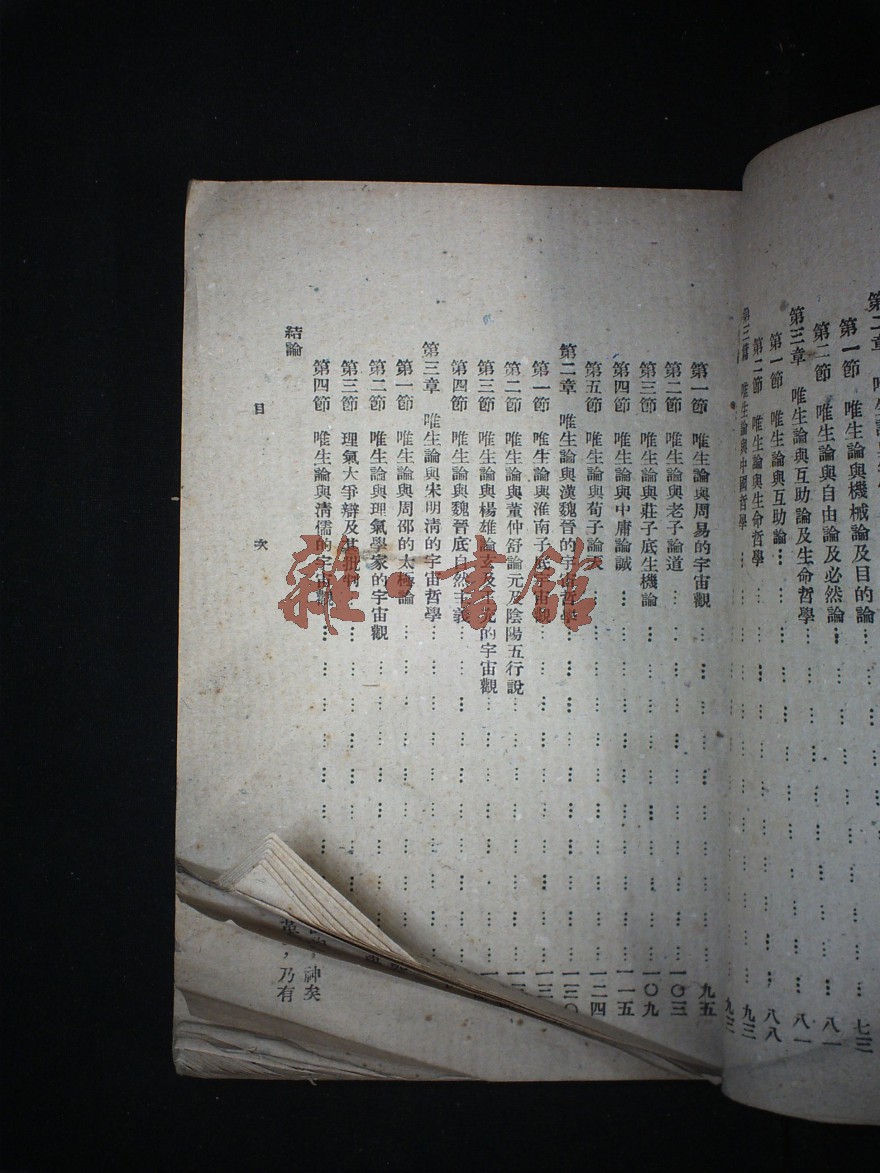 第二章
第一節 唯生論與機械論及目的論 七三
第二節 唯生論與自由論及必然論 八一
第三章 唯生論與互助論及生命哲學 八一
第一節 唯生論與互助論 八八
第二節 唯生論與生命哲學 九三
第三篇 唯生論與中國哲學 九三
第一節 唯生論與周易的宇宙觀 九五
第二節 唯生論與老子論道 一〇三
第三節 唯生論與莊子底生機論 一〇九
第四節 唯生論與中庸論誠 一一五
第五節 唯生論與荀子論天 一二四
第二章 唯生論與漢魏晉的宇宙哲學 一三〇
第一節 唯生論與淮南子底宇宙觀 一三
第二節 唯生論與董仲舒論元及陰陽五行說
第三節 唯生論與楊雄論玄及王充的宇宙觀
第四節 唯生論與魏晉底自然主義
第三章 唯生論與宋明清的宇宙哲學
第一節 唯生論與周邵的太極論
第二節 唯生論與理氣學家的宇宙觀
第三節 理氣大爭辯及其批判
第四節 唯生論與清儒的宇宙觀
結論
目 次
神矣
乃有
雜·書館